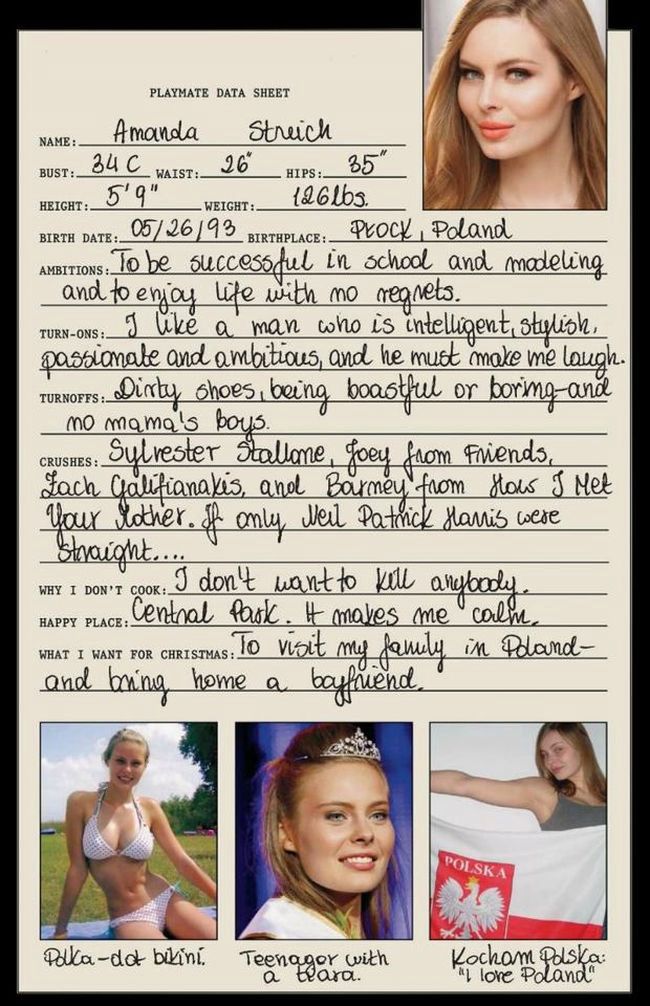 PLAYMATE DATA SHEET
NAME: Amanda Streich
BUST: 34 C WAIST: 26" HIPS: 35"
HEIGHT: 5'9" WEIGHT: 126 lbs.
BIRTH DATE: 05/26/93 BIRTHPLACE: Płock, Poland
AMBITIONS: To be successful in school and modeling
and to enjoy life with no regrets.
TURN-ONS: I like a man who is intelligent, stylish,
passionate and ambitious, and he must make me laugh.
TURNOFFS: Dirty shoes, being boastful or boring—and
no mama's boys.
CRUSHES: Sylvester Stallone, Joey from Friends,
Zach Galifianakis, and Barney from How I Met
Your Mother. If only Neil Patrick Harris were
straight....
WHY I DON'T COOK: I don't want to kill anybody.
HAPPY PLACE: Central Park. It makes me calm.
WHAT I WANT FOR CHRISTMAS: To visit my family in Poland—
and bring home a boyfriend.
POLSKA
Polka-dot bikini.
Teenager with
a tiara.
Kocham Polska:
"I love Poland"